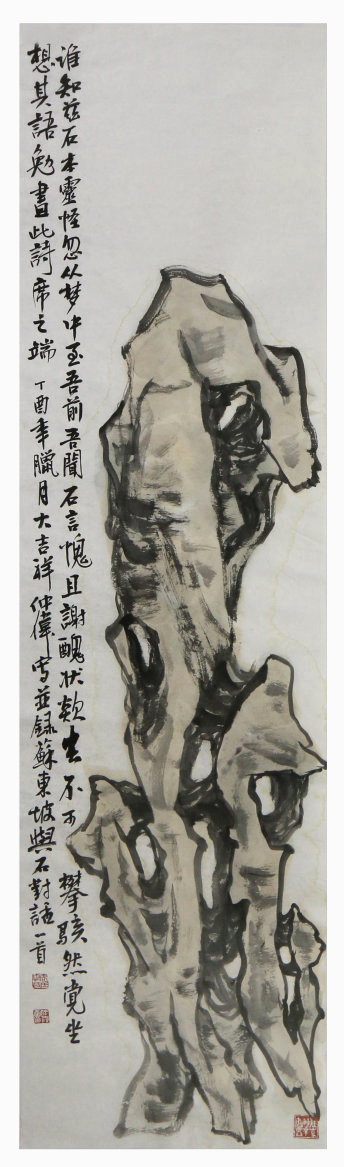 谁知兹石本靈怪忽从梦中至吾前吾聞石言愧且謝醜状歘去不可攀駭然覺坐
想其語勉書此詩席之端 丁酉年臘月大吉祥仲偉寫並録蘇東坡與石對話一首